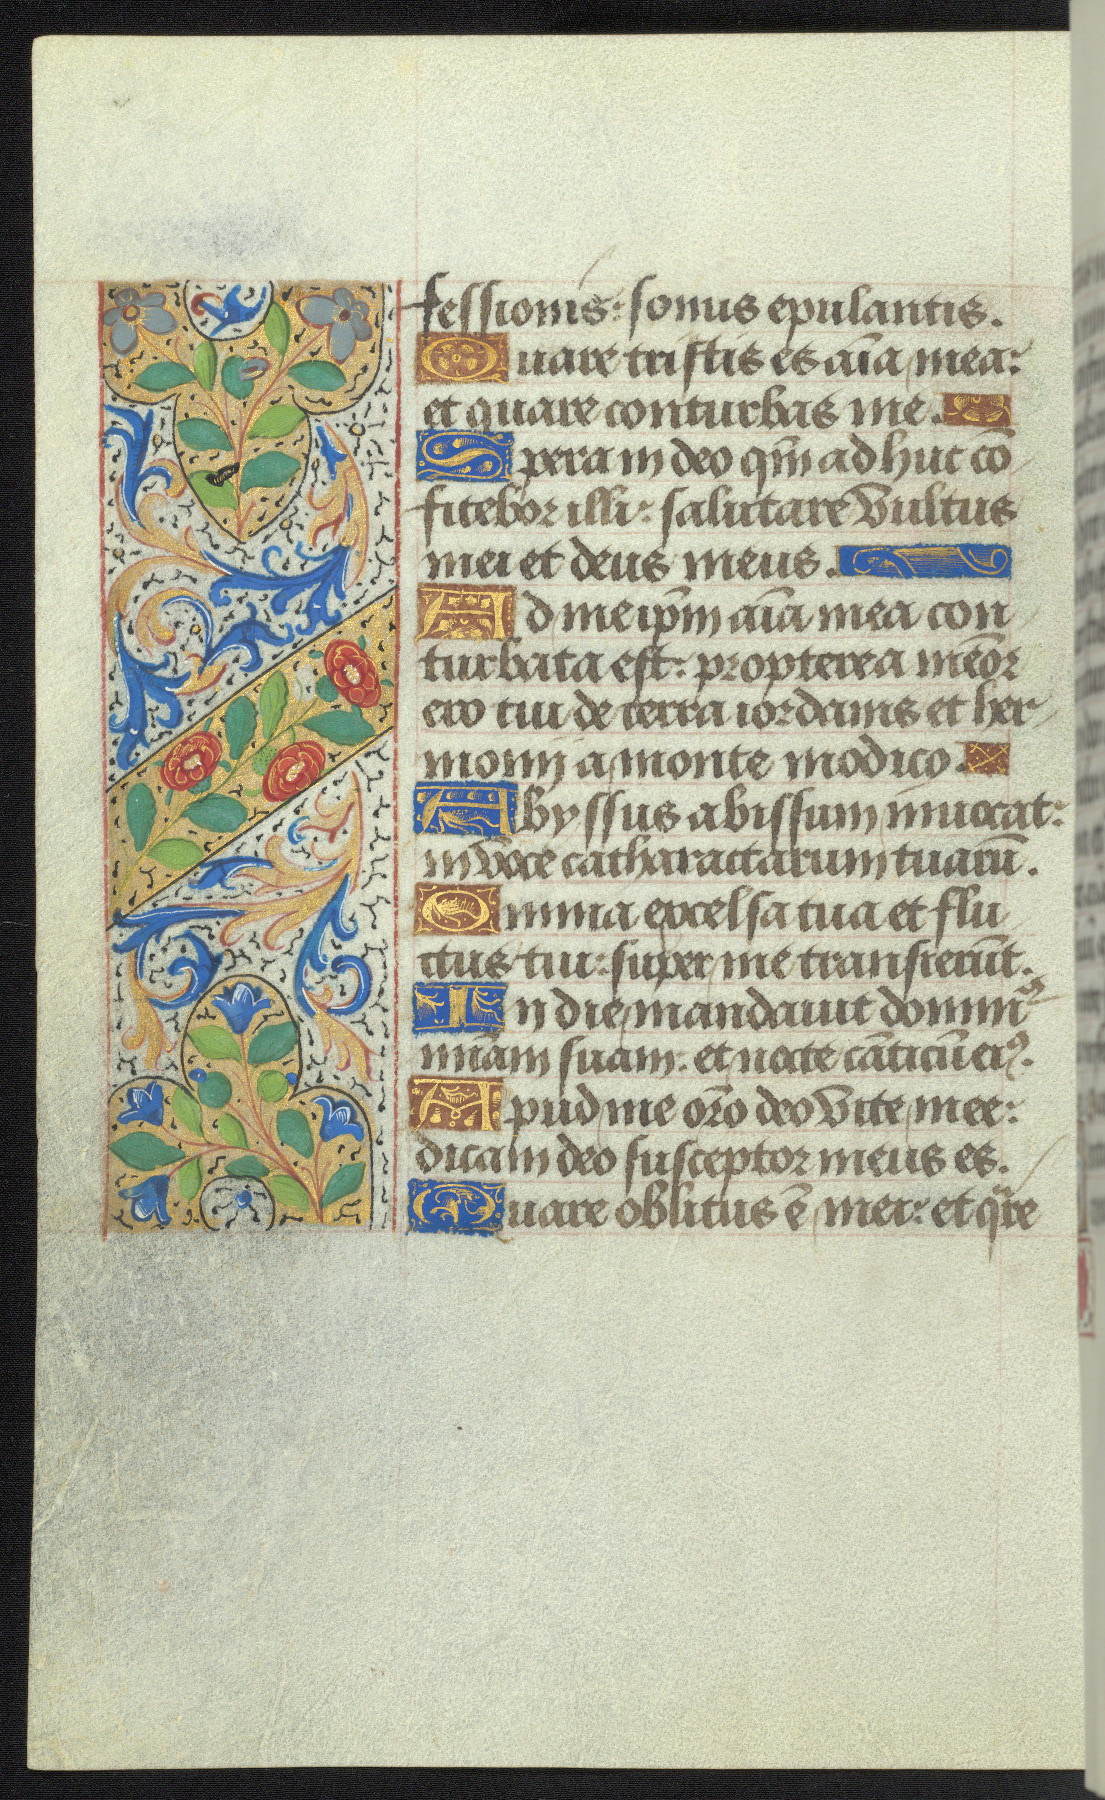 fessionis: sonus epulantis.
Quare tristis es aīa mea:
et quare conturbas me.
Spera in deo qm̄ adhuc cō
fitebor illi: salutare vultus
mei et deus meus.
Ad me ip̄m aīa mea con
turbata est: propterea memōr
ero tui de terra iordanis et her
monij a monte modico.
Abyssus abissum inuocat:
in voce catharactarum tuarū.
Omnia excelsa tua et flu
ctus tui: super me transierūt.
In die mandauit dominꝰ
mīam suam: et nocte cāticū eiꝰ.
Apud me orō deo vite mee:
dicam deo susceptor meus es.
Quare oblitus ē mei: et qͣre